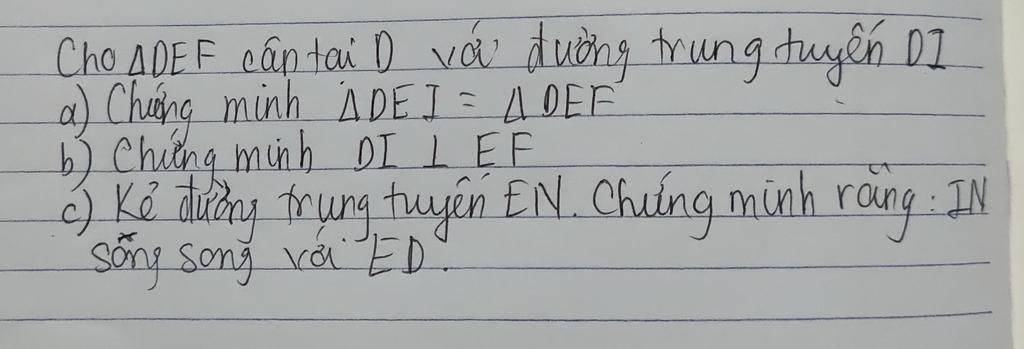 Cho ΔDEF cân tại D với đường trung tuyến DI
a) Chứng minh ΔDEI = ΔDEF
b) Chứng minh DI ⊥ EF
c) Kẻ đường trung tuyến EN. Chứng minh rằng: IN
sông song với ED.